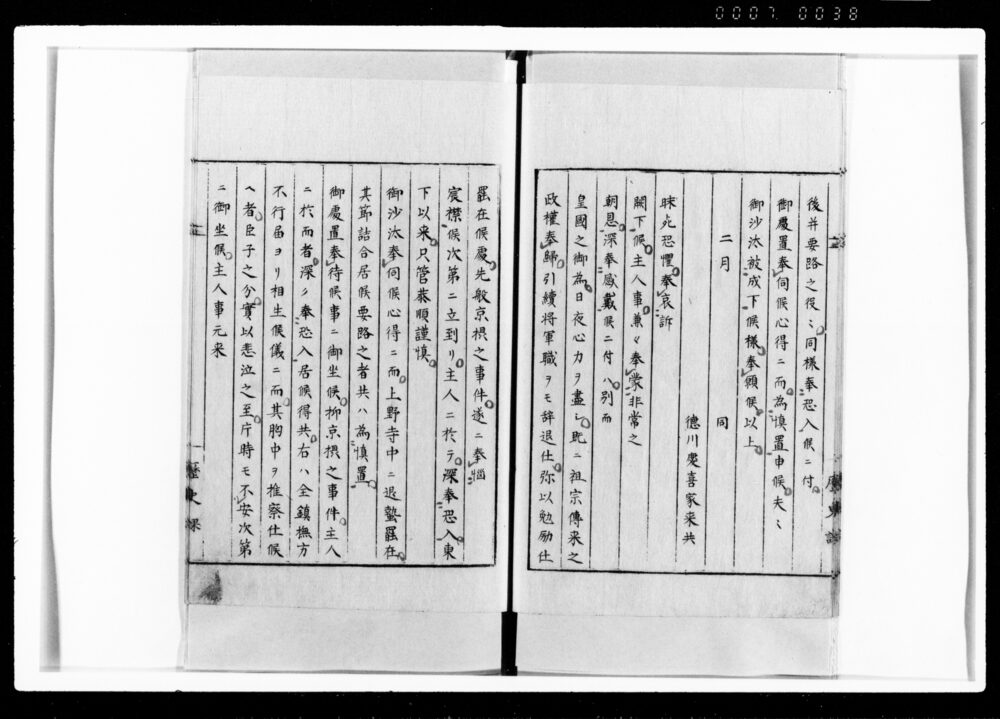 0007 0038
後并要路之役〻同様奉恐入候ニ付
御處置奉伺候心得ニ而為慎置申候夫〻
御沙汰被成下候様奉願候以上
二月 同
徳川慶喜家来共
昧死恐懼奉哀訴
闕下候主人事兼々奉蒙非常之
朝恩深奉感戴候ニ付ハ別而
皇國之御為日夜心力ヲ盡シ既ニ祖宗傳来之
政權奉歸引續将軍職ヲモ辞退仕弥以勉励仕
罷在候處先般京摂之事件遂ニ奉惱
宸襟候次第ニ立到リ主人ニ於テ深奉恐入東
下以来只管恭順謹慎
御沙汰奉伺候心得ニ而上野寺中ニ退蟄罷在
其節詰合居候要路之者共ハ為慎置
御處置奉待候事ニ御坐候抑京摂之事件主人
ニ於而者深ク奉恐入居候得共右ハ全鎮撫方
不行届ヨリ相生候儀ニ而其胸中ヲ推察仕候
ヘ者臣子之分實以悲泣之至片時モ不安次第
ニ御坐候主人事元来
歴史課